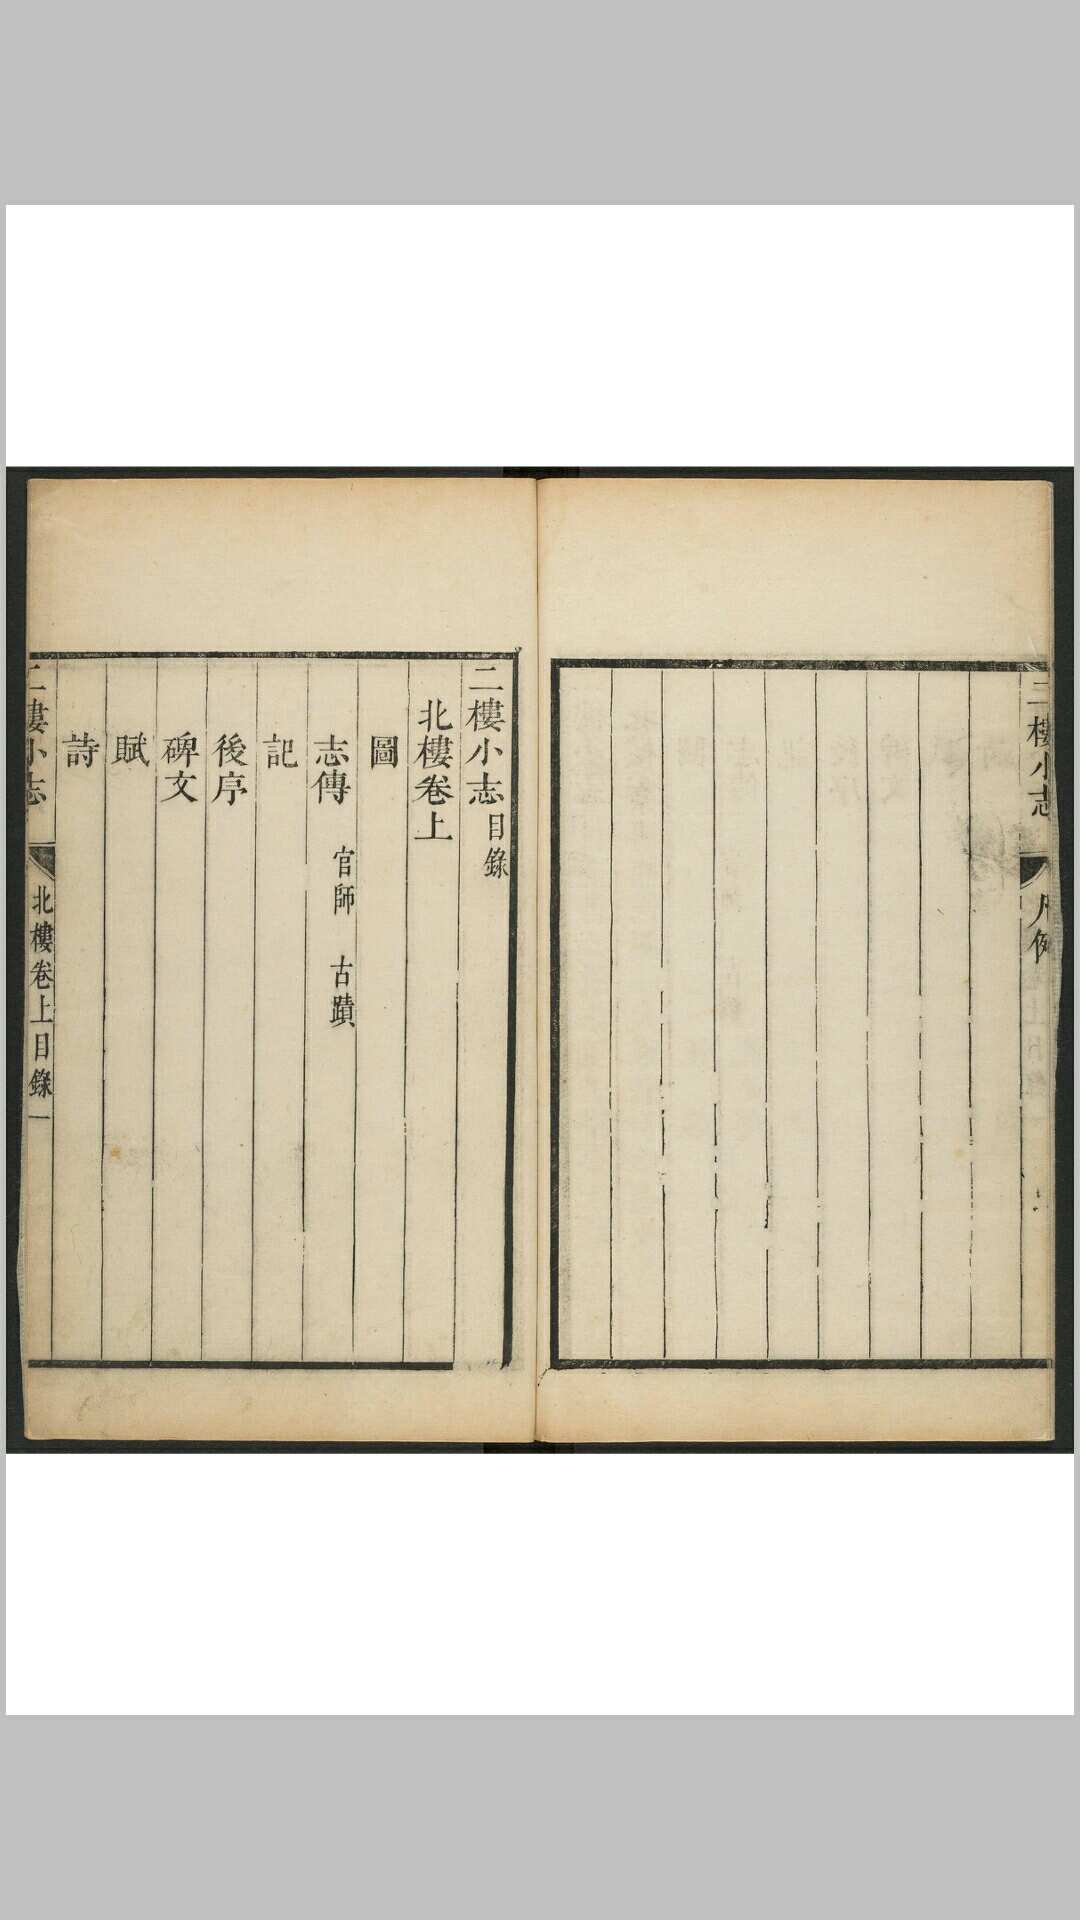 二樓小志
凡例
二樓小志目錄
北樓卷上
圖
志傳 官師 古蹟
記
後序
碑文
賦
詩
二樓小志
北樓卷上目錄一